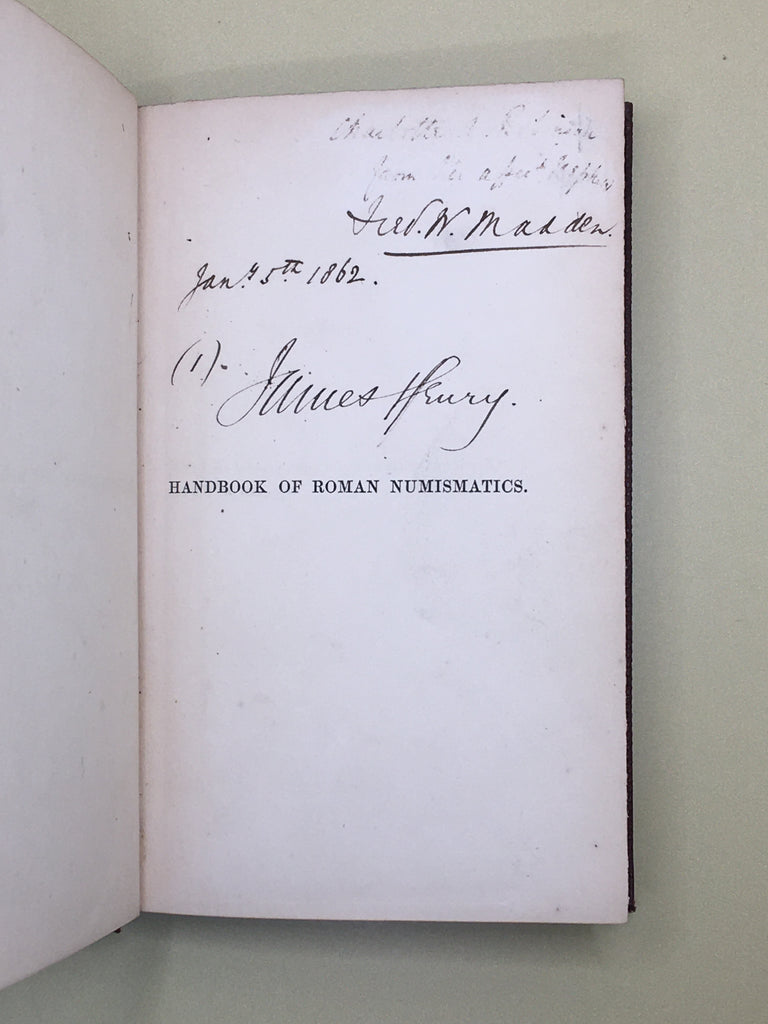 Charlotte
from her affect. Nephew
Fred. W. Madden.
Jany. 5th 1862.
(1). James Henry.
HANDBOOK OF ROMAN NUMISMATICS.